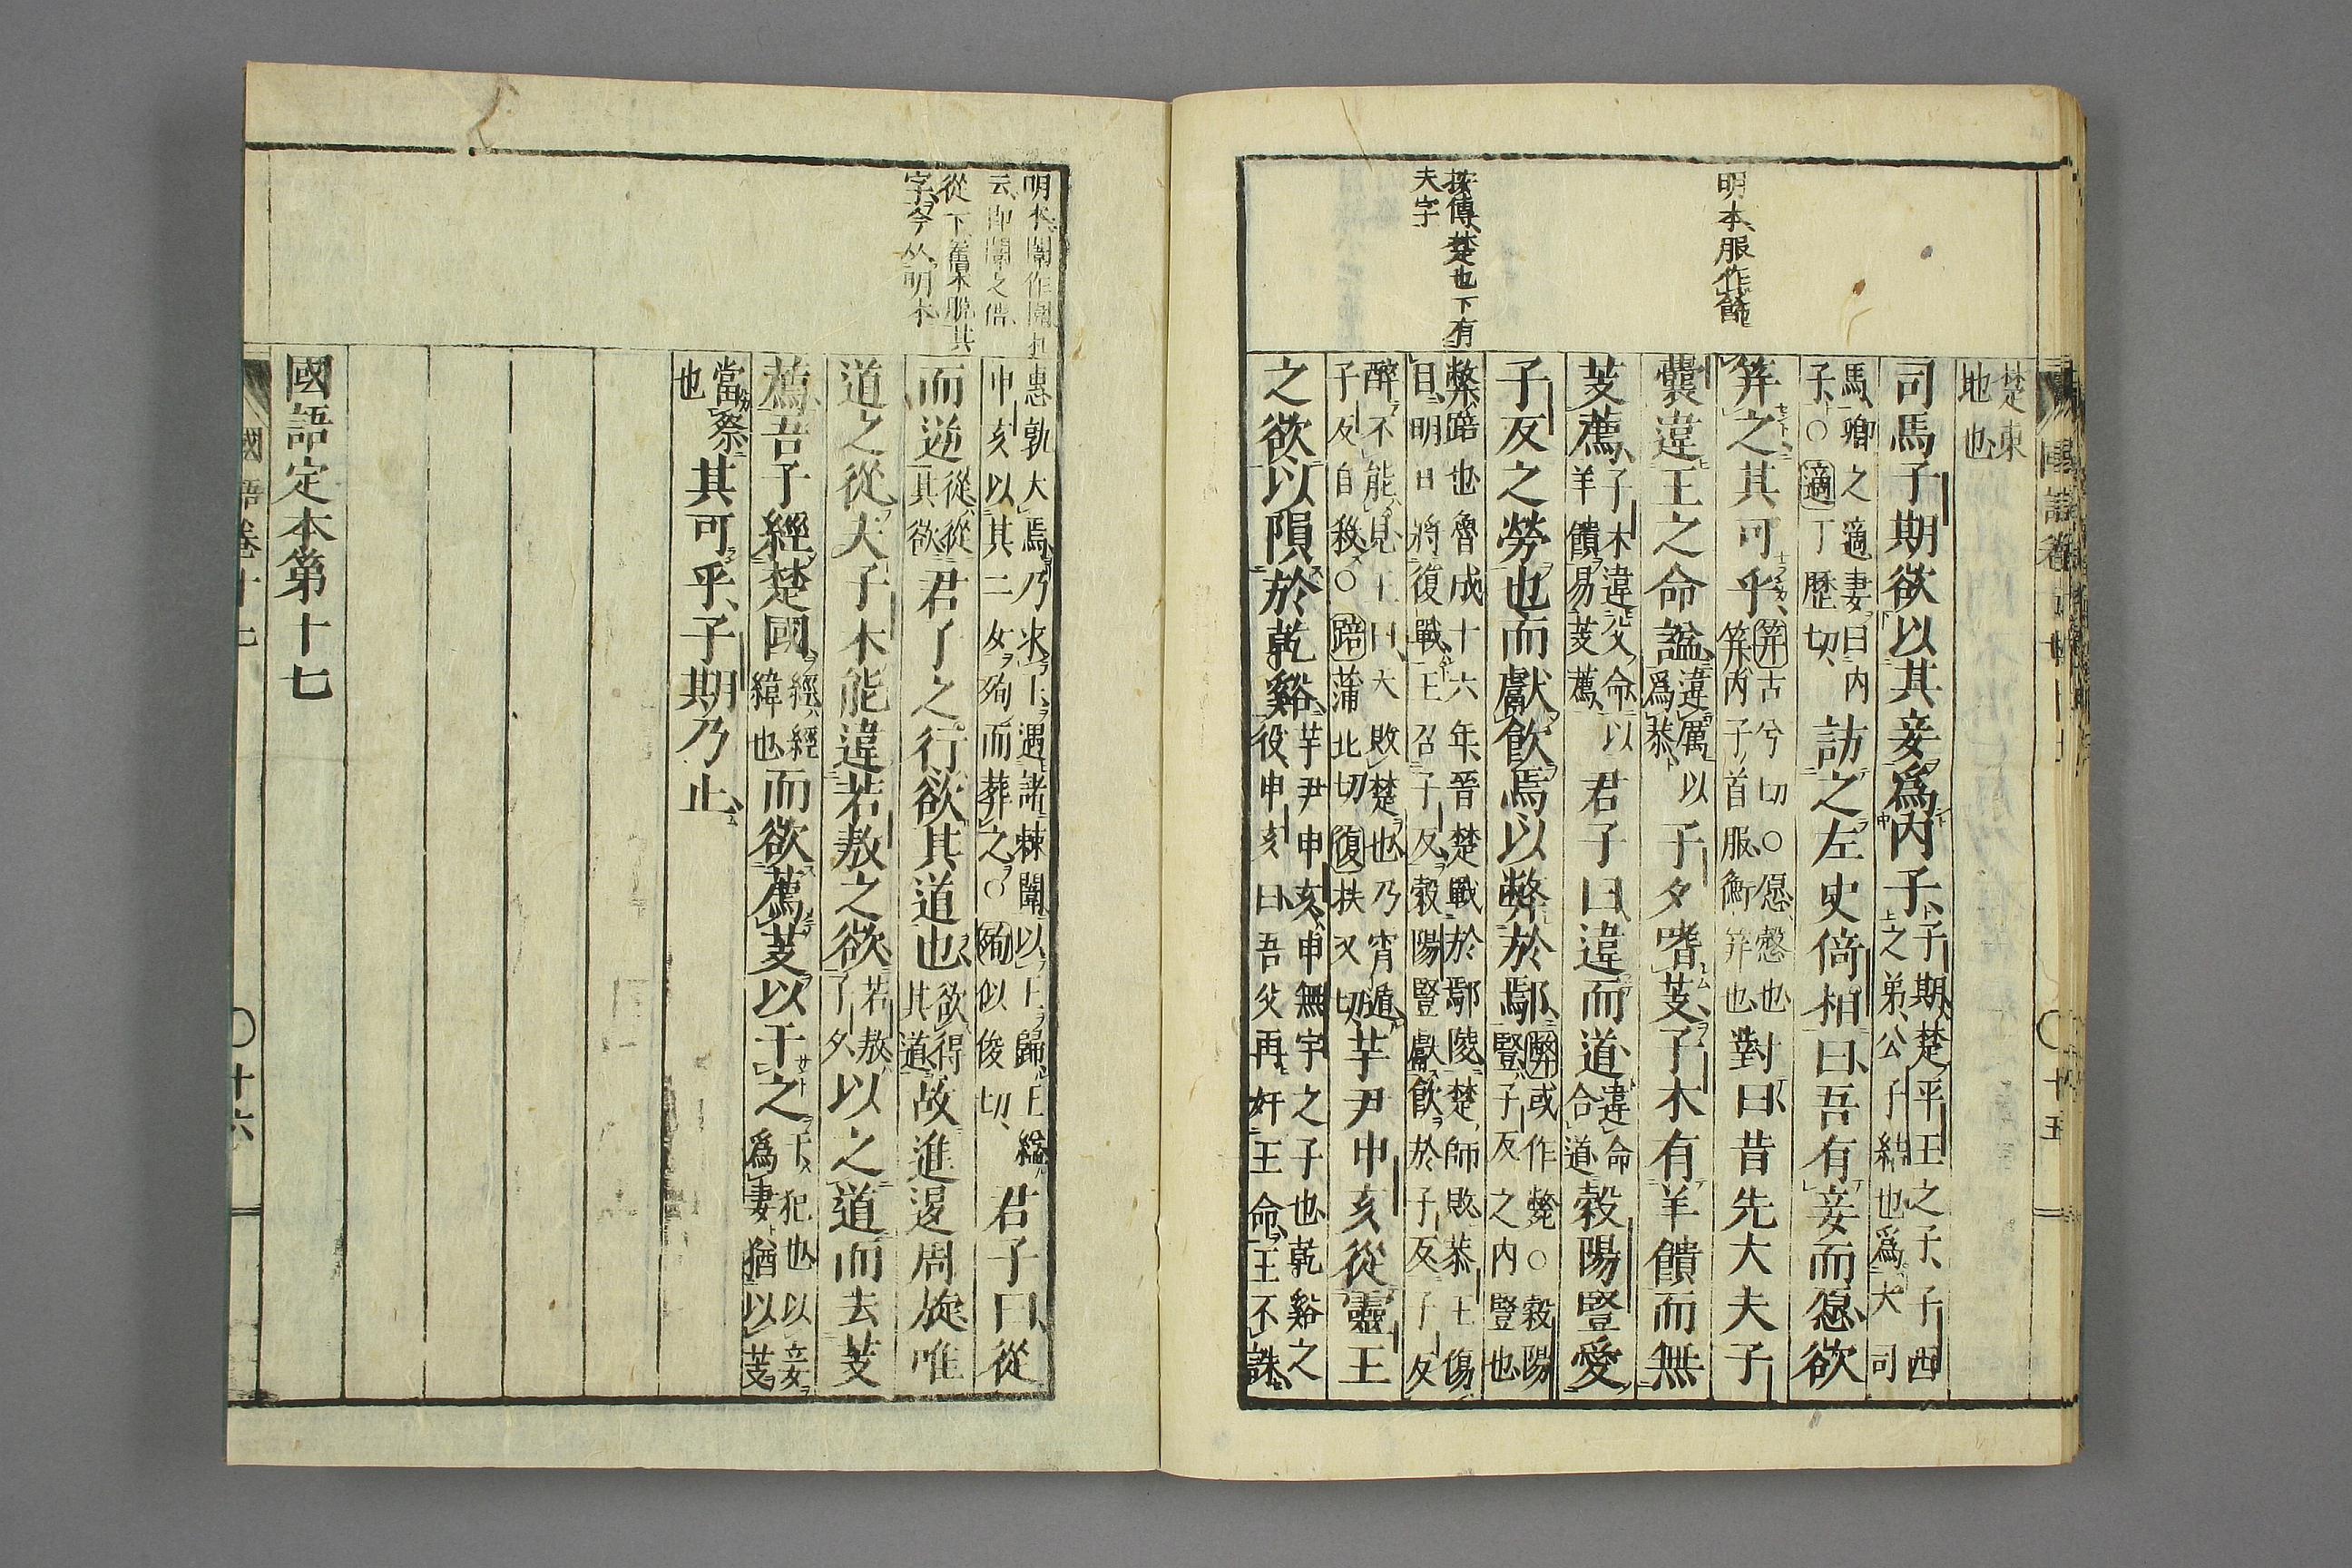 明本服作飾
按傳楚也下有
夫字
楚東地也
司馬子期欲以其妾爲内子、子期、楚平王之子、子西之弟、公子結也、爲大司
馬、卿之適妻曰内子、○適丁歷切、訪之左史倚相曰、吾有妾而愿欲
笄之其可乎、笄古兮切○愿、愨也笄内子首服、衡笄也對曰、昔先大夫子
囊違王之命謚、違厲以爲恭、子夕嗜芰、子木有羊饋而無
芰薦、子木違父命以羊饋易芰薦、君子曰、違而道、違命合道穀陽豎愛
子反之勞也而獻飮焉以弊於鄢、弊或作斃○穀陽豎、子反之内豎也
弊、踣也魯成十六年、晉楚戰於鄢陵、楚師敗恭王傷目、明日將復戰、王召子反、穀陽豎獻飮於子反子反
醉不能見王曰、大敗楚也乃宵遁、子反自殺、○踣蒲北切復扶又切芋尹申亥從靈王
之欲以隕於乾谿、芋尹申亥、申無宇之子也乾谿之役、申亥曰吾父再奸王命、王不誅、
國語卷十七
十五
明本闈作圍
云即闈之借
從下舊本脱其
字今从明本
惠孰大焉乃求王遇諸棘闈以王歸、王縊申亥以其二女殉而葬之○殉似俊切、君子曰、從
而逆從從其欲君子之行欲其道也、欲得其道故進退周旋唯
道之從夫子木能違若敖之欲若敖、子夕、以之道而去芰
薦、吾子經楚國經、經緯也而欲薦芰以干之干、犯也以妾爲妻猶以芰
當祭也其可乎、子期乃止、
國語定本第十七
國語卷十七
十六